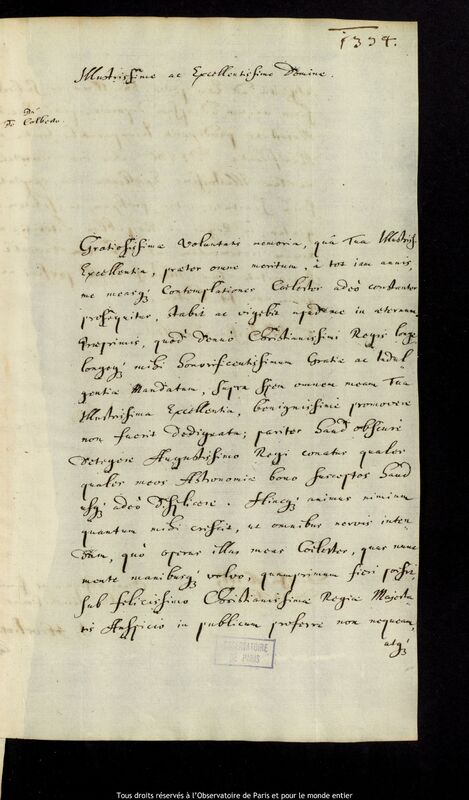 1334.
Illustrissime ac Excellentissime Domine.
Dn̄
De Colberto.
Gratiosissimæ Voluntatis memoria, quâ Tua Illustriss.
Excellentia, præter omne meritum, à tot iam annis,
me measq; Contemplationes Coelestes adeò constanter
prosequitur, stabit ac vigebit in æternum,
præprimis, quòd denuò Christianissimi Regis longè
longeq; mihi honorificentissimum Gratiæ ac Indul
gentiæ Mandatum, supra spem omnem meam Tua
Illustrissima Excellentia, benignissimè promovere
non fuerit dedignata; pariter haud obscurè
detegere Augustissimo Regi conatus quales
quales meos Astronomiæ bono susceptos haud
usq; adeò displicere. Hincq; animus nimium
quantum mihi crescit, ut omnibus nervis inten
dam, quò operas illas meas Coelestes, quas nunc
mente manibusq; volvo, quamprimum fieri possit,
sub felicissimo Christianissimæ Regiæ Majesta
tis Auspicio in publicum proferre non nequeam,
atq;
OBSERVATOIRE
DE PARIS
Tous droits réservés à l'Observatoire de Paris et pour le monde entier